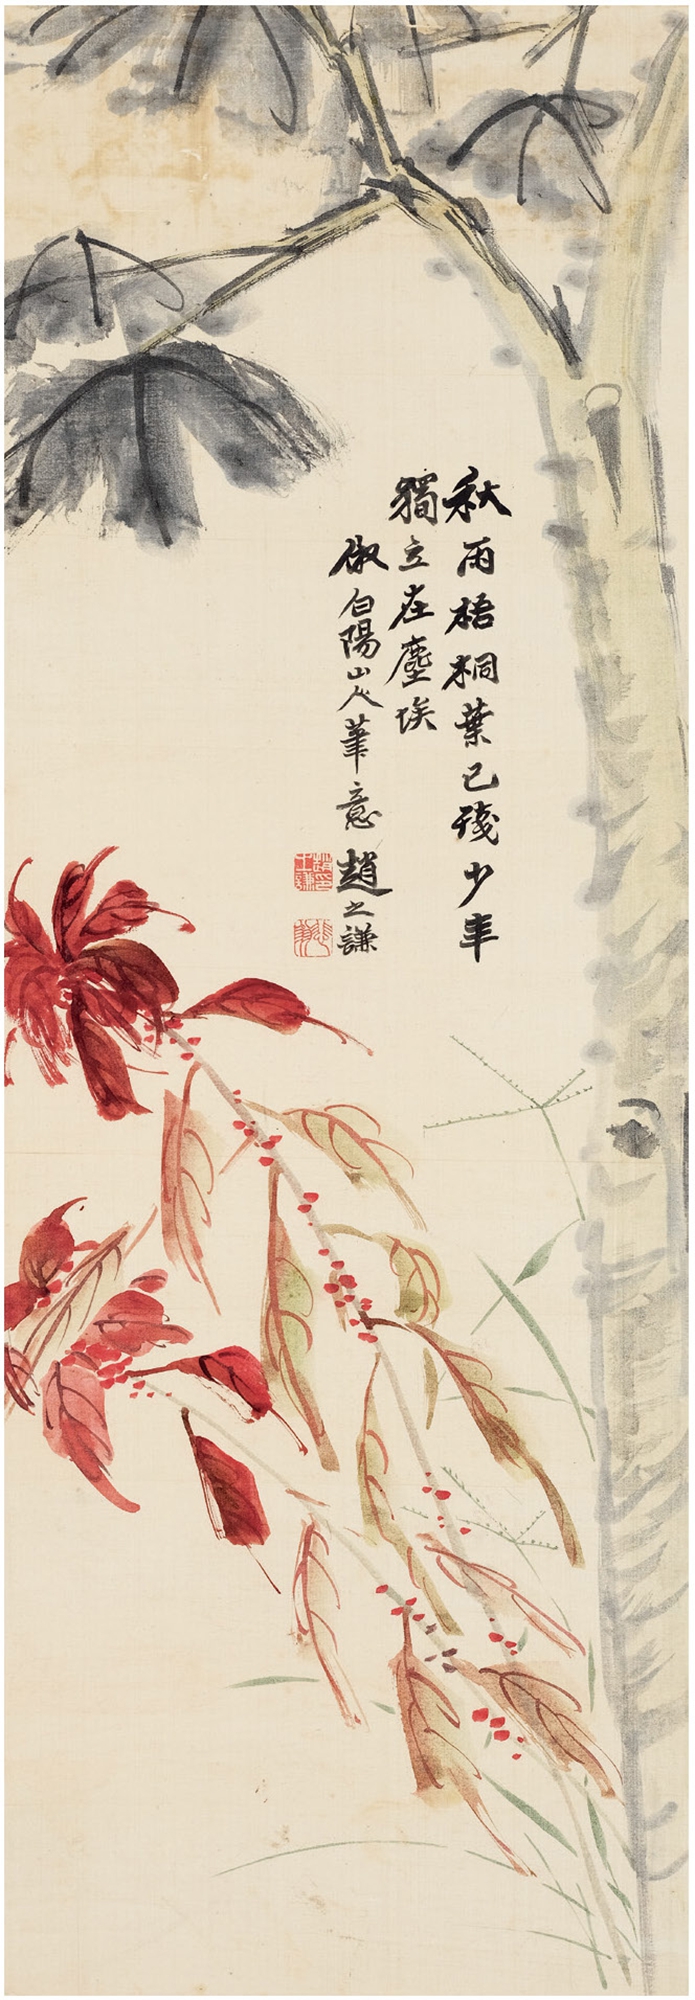 秋雨梧桐葉已殘少年
獨立在塵埃
倣白陽山人筆意趙之謙